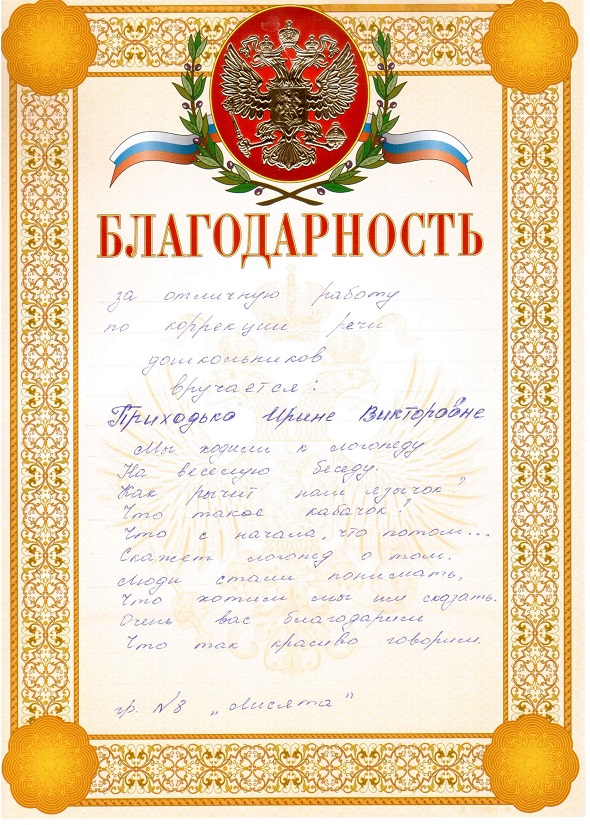 БЛАГОДАРНОСТЬ
за отличную работу
по коррекции речи
дошкольников
вручается:
Приходько Ирине Викторовне
Мы ходили к логопеду
На веселую беседу.
Как рычит наш язычок?
Что такое кабачок?
Что с начала, что потом...
Скажет логопед о том.
Люди стали понимать,
Что хотим мы им сказать.
Очень вас благодарим
Что так красиво говорим.
гр. №8 „Лисята"